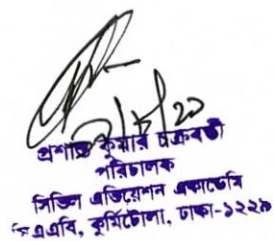 ২/৮/২০
প্রশান্ত কুমার চক্রবর্তী
পরিচালক
সিভিল এভিয়েশন একাডেমি
সিএএবি, কুর্মিটোলা, ঢাকা-১২২৯